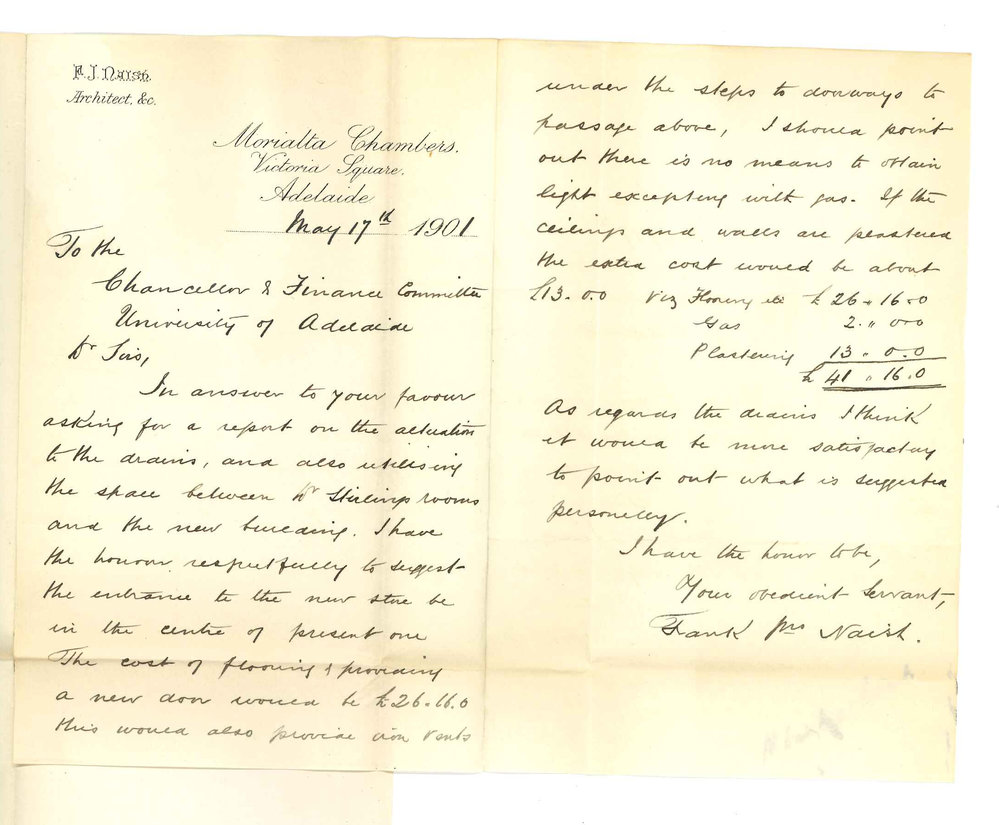 F. J. Naish.
Architect, &c.
Morialta Chambers.
Victoria Square.
Adelaide
May 17th 1901
To the
Chancellor & Finance Committee
University of Adelaide
Dr Sirs,
In answer to your favour
asking for a report on the alteration
to the drains, and also utilising
the space between Dr Stirlings rooms
and the new building. I have
the honour respectfully to suggest
the entrance to the new store be
in the centre of present one
The cost of flooring & providing
a new door would be £26.16.0
this would also provide iron vents
under the steps to doorways to
passage above, I should point
out there is no means to obtain
light excepting with gas. If the
ceilings and walls are plastered
the extra cost would be about
£13.0.0 Viz Flooring etc £26 " 16.0
Gas 2. " 0.0
Plastering 13 " 0.0
£41 " 16.0
As regards the drains I think
it would be more satisfactory
to point out what is suggested
personelly.
I have the honor to be,
Your obedient Servant,
Frank Jno Naish.